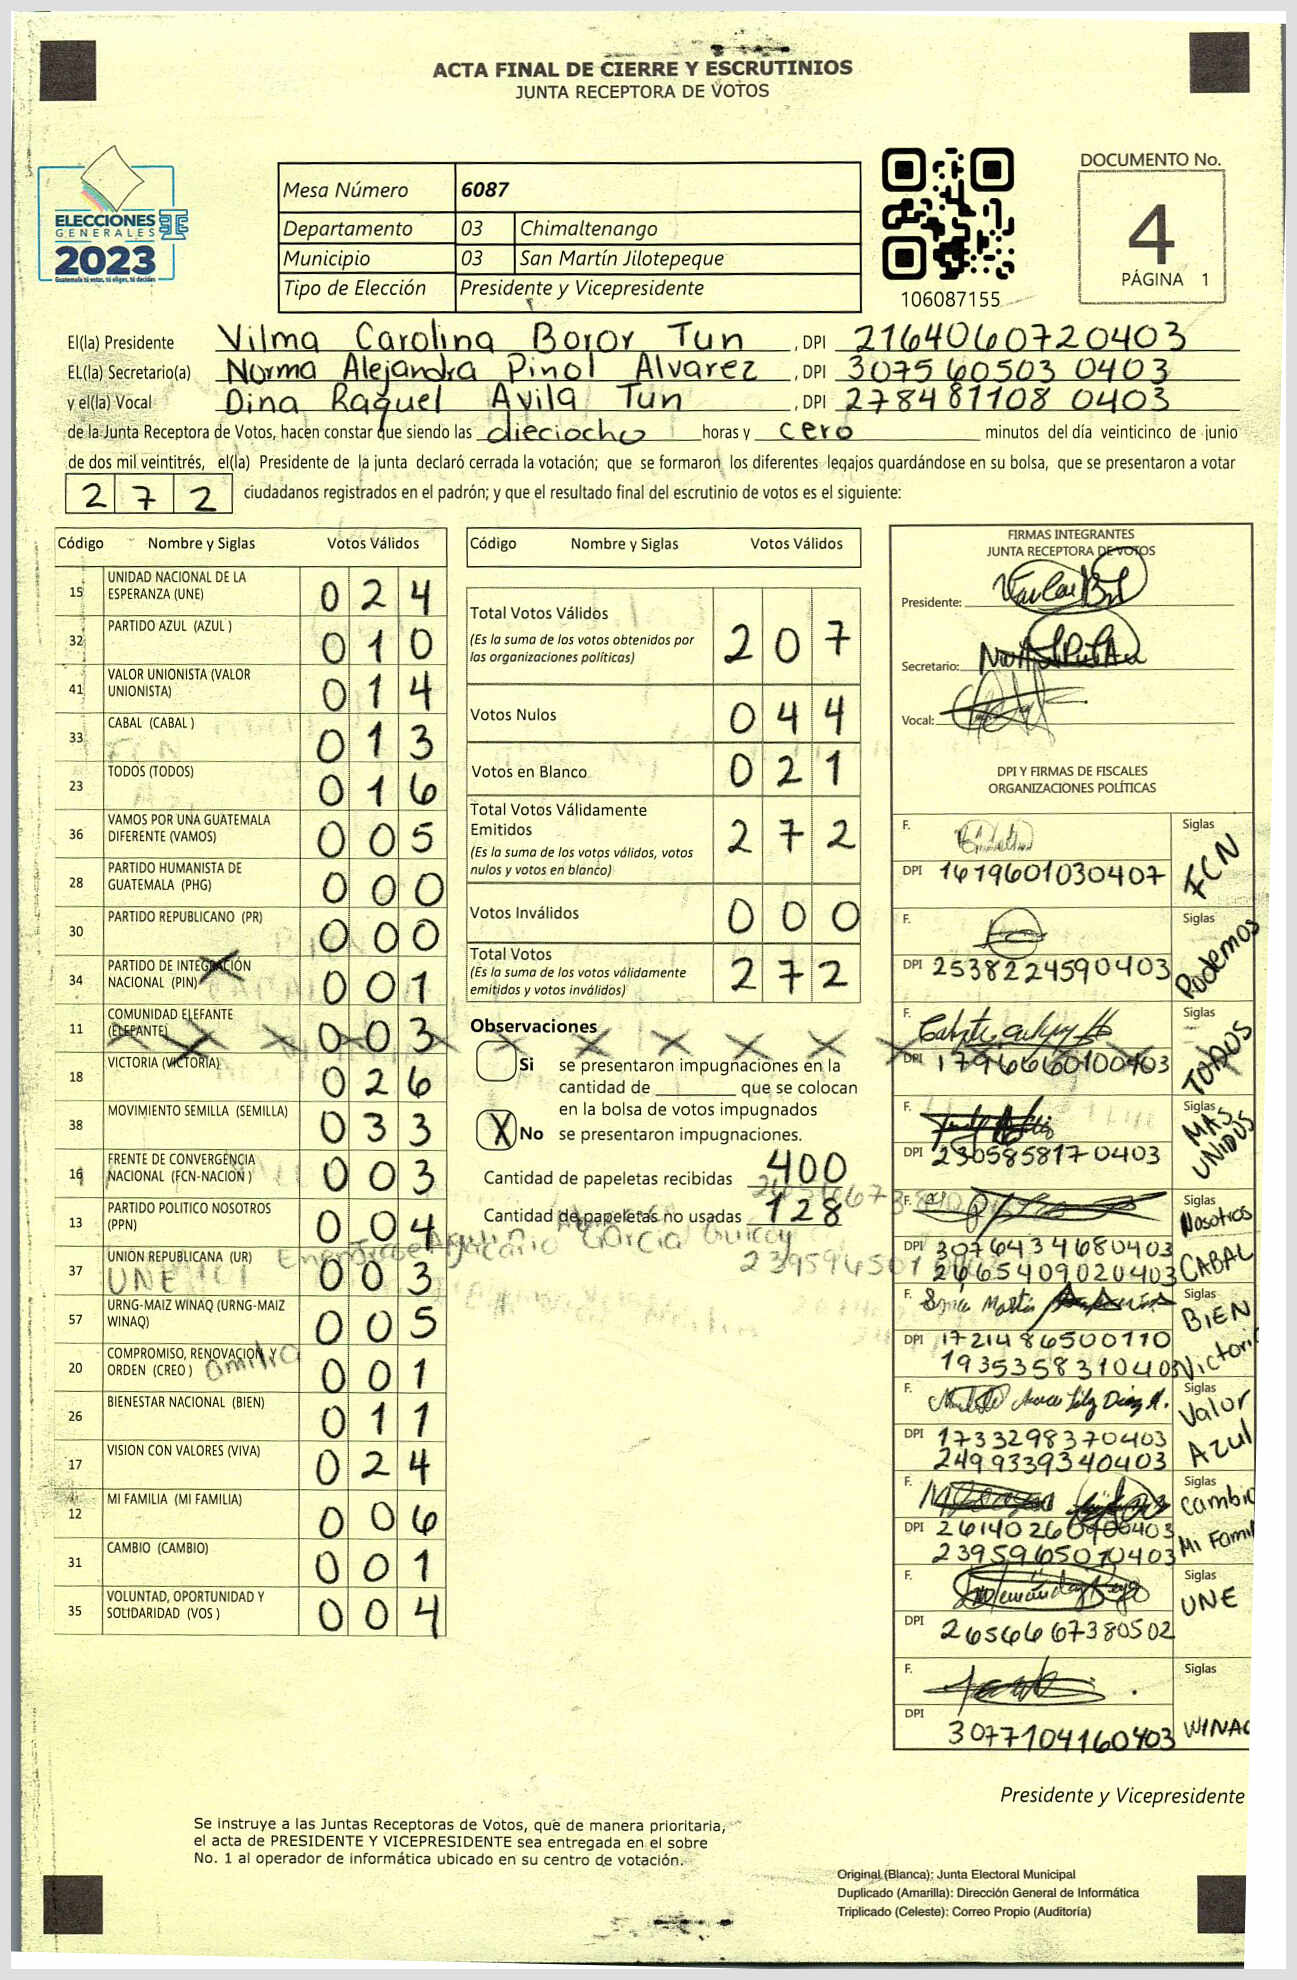 ACTA FINAL DE CIERRE Y ESCRUTINIOS
JUNTA RECEPTORA DE VOTOS
ELECCIONES
GENERALES
2023
Guatemala tú votas, tú eliges, tú decides
Mesa Número 6087
Departamento 03 Chimaltenango
Municipio 03 San Martín Jilotepeque
Tipo de Elección Presidente y Vicepresidente
106087155
DOCUMENTO No.
4
PÁGINA 1
El(la) Presidente Vilma Carolina Boror Tun , DPI 2164060720403
EL(la) Secretario(a) Norma Alejandra Pinol Alvarez , DPI 307560503 0403
y el(la) Vocal Dina Raquel Avila Tun , DPI 278481108 0403
de la Junta Receptora de Votos, hacen constar que siendo las dieciocho horas y cero minutos del día veinticinco de junio
de dos mil veintitrés, el(la) Presidente de la junta declaró cerrada la votación; que se formaron los diferentes legajos guardándose en su bolsa, que se presentaron a votar
272 ciudadanos registrados en el padrón; y que el resultado final del escrutinio de votos es el siguiente:
Código Nombre y Siglas Votos Válidos
15 UNIDAD NACIONAL DE LA ESPERANZA (UNE) 024
32 PARTIDO AZUL (AZUL ) 010
41 VALOR UNIONISTA (VALOR UNIONISTA) 014
33 CABAL (CABAL ) 013
23 TODOS (TODOS) 016
36 VAMOS POR UNA GUATEMALA DIFERENTE (VAMOS) 005
28 PARTIDO HUMANISTA DE GUATEMALA (PHG) 000
30 PARTIDO REPUBLICANO (PR) 000
34 PARTIDO DE INTEGRACIÓN NACIONAL (PIN) 001
11 COMUNIDAD ELEFANTE (ELEFANTE) 003
18 VICTORIA (VICTORIA) 026
38 MOVIMIENTO SEMILLA (SEMILLA) 033
16 FRENTE DE CONVERGENCIA NACIONAL (FCN-NACION ) 003
13 PARTIDO POLITICO NOSOTROS (PPN) 004
37 UNION REPUBLICANA (UR) 003
UNE
57 URNG-MAIZ WINAQ (URNG-MAIZ WINAQ) 005
20 COMPROMISO, RENOVACION Y ORDEN (CREO ) 001
26 BIENESTAR NACIONAL (BIEN) 011
17 VISION CON VALORES (VIVA) 024
12 MI FAMILIA (MI FAMILIA) 006
31 CAMBIO (CAMBIO) 001
35 VOLUNTAD, OPORTUNIDAD Y SOLIDARIDAD (VOS ) 004
Código Nombre y Siglas Votos Válidos
Total Votos Válidos 207
(Es la suma de los votos obtenidos por
las organizaciones políticas)
Votos Nulos 044
Votos en Blanco 021
Total Votos Válidamente
Emitidos 272
(Es la suma de los votos válidos, votos
nulos y votos en blanco)
Votos Inválidos 000
Total Votos 272
(Es la suma de los votos válidamente
emitidos y votos inválidos)
Observaciones
Si se presentaron impugnaciones en la
cantidad de que se colocan
en la bolsa de votos impugnados
X No se presentaron impugnaciones.
Cantidad de papeletas recibidas 400
Cantidad de papeletas no usadas 128
García
FIRMAS INTEGRANTES
JUNTA RECEPTORA DE VOTOS
Presidente:
Secretario:
Vocal:
DPI Y FIRMAS DE FISCALES
ORGANIZACIONES POLÍTICAS
F. Siglas FCN
DPI 1619601030407
F. Siglas Podemos
DPI 2538224590403
F. Siglas TODOS
DPI 1796660100403
F. Siglas MAS UNIDOS
DPI 230585817 0403
F. Siglas Nosotros
DPI 3076434680403
2665409020403 CABAL
F. Siglas BIEN
DPI 1721486500110
1935358310403 Victori
F. Siglas Valor
DPI 1733298370403
2499339340403 Azul
F. Siglas Cambio
DPI 26140260900403
2395965010403 Mi Famil
F. Siglas UNE
DPI 2656667380502
F. Siglas
DPI 3077104160403 WINAQ
Presidente y Vicepresidente
Se instruye a las Juntas Receptoras de Votos, que de manera prioritaria,
el acta de PRESIDENTE Y VICEPRESIDENTE sea entregada en el sobre
No. 1 al operador de informática ubicado en su centro de votación.
Original (Blanca): Junta Electoral Municipal
Duplicado (Amarilla): Dirección General de Informática
Triplicado (Celeste): Correo Propio (Auditoría)